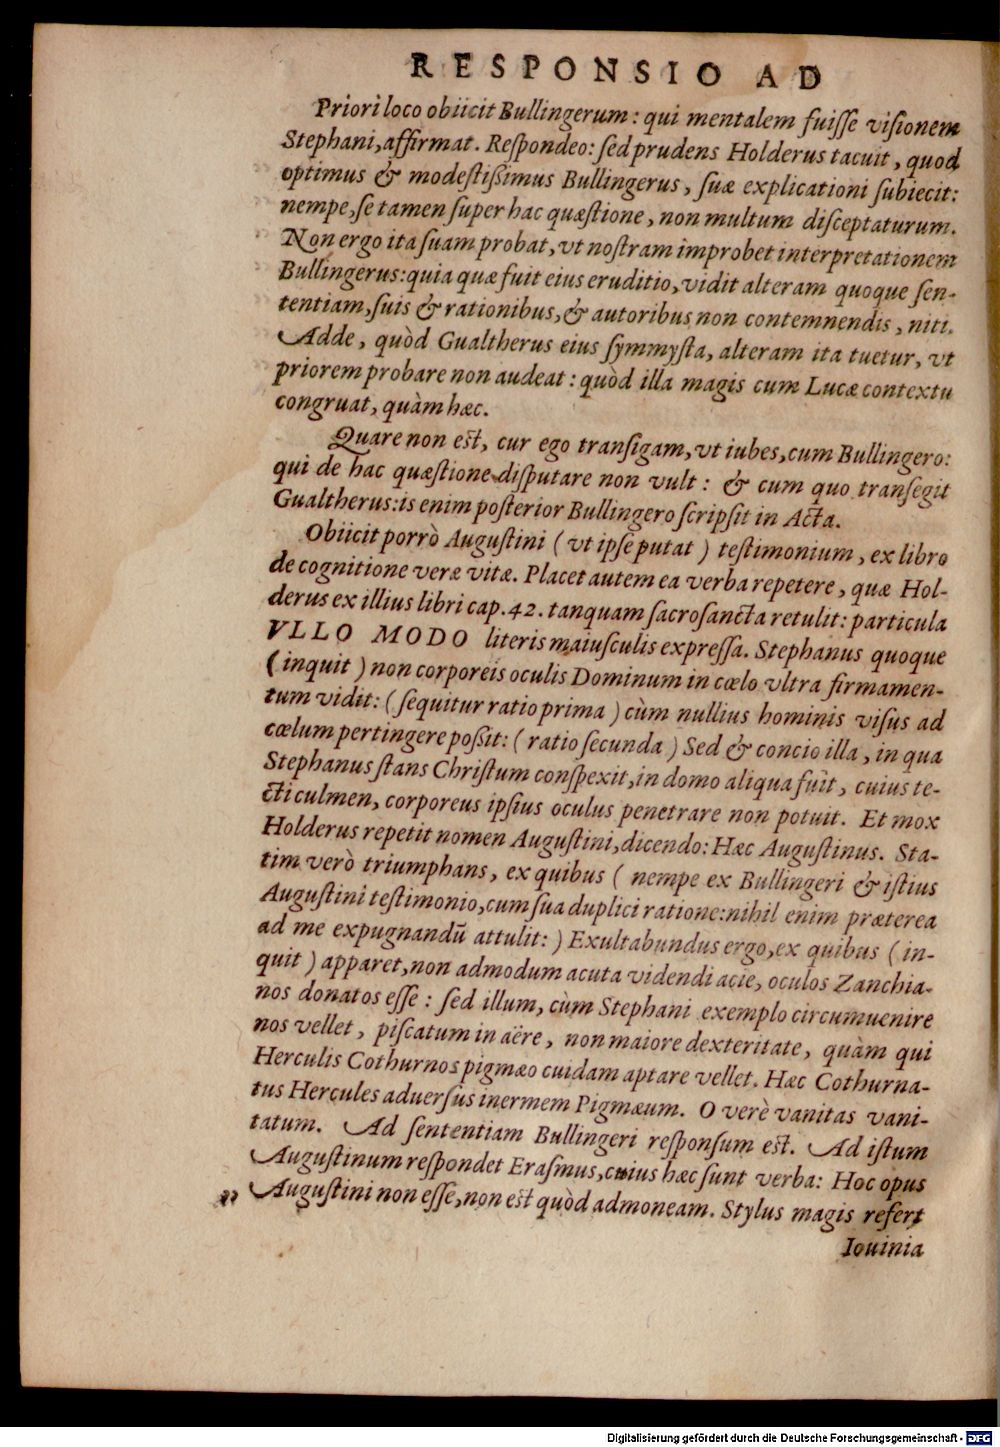 RESPONSIO AD
Priori loco obiicit Bullingerum: qui mentalem fuiſſe viſionem
Stephani, affirmat. Reſpondeo: ſed prudens Holderus tacuit, quod
optimus & modeſtißimus Bullingerus, ſuæ explicationi ſubiecit:
nempe, ſe tamen ſuper hac quæſtione, non multum diſceptaturum.
Non ergo ita ſuam probat, vt noſtram improbet interpretationem
Bullingerus: quia quæ fuit eius eruditio, vidit alteram quoque ſen-
tentiam, ſuis & rationibus, & autoribus non contemnendis, niti.
Adde, quòd Gualtherus eius ſymmyſta, alteram ita tuetur, vt
priorem probare non audeat: quòd illa magis cum Lucæ contextu
congruat, quàm hæc.
Quare non est, cur ego tranſigam, vt iubes, cum Bullingero:
qui de hac quæſtione diſputare non vult: & cum quo tranſegit
Gualtherus: is enim poſterior Bullingero ſcripſit in Acta.
Obiicit porrò Auguſtini (vt ipſe putat) teſtimonium, ex libro
de cognitione veræ vitæ. Placet autem ea verba repetere, quæ Hol-
derus ex illius libri cap. 42. tanquam ſacroſancta retulit: particula
VLLO MODO literis maiuſculis expreſſa. Stephanus quoque
(inquit) non corporeis oculis Dominum in cœlo vltra firmamen-
tum vidit: (ſequitur ratio prima) cùm nullius hominis viſus ad
cœlum pertingere poßit: (ratio ſecunda) Sed & concio illa, in qua
Stephanus ſtans Chriſtum conſpexit, in domo aliqua fuit, cuius te-
cti culmen, corporeus ipſius oculus penetrare non potuit. Et mox
Holderus repetit nomen Auguſtini, dicendo: Hæc Auguſtinus. Sta-
tim verò triumphans, ex quibus (nempe ex Bullingeri & iſtius
Auguſtini teſtimonio, cum ſua duplici ratione: nihil enim præterea
ad me expugnandū attulit:) Exultabundus ergo, ex quibus (in-
quit) apparet, non admodum acuta videndi acie, oculos Zanchia-
nos donatos eſſe: ſed illum, cùm Stephani exemplo circumuenire
nos vellet, piſcatum in aëre, non maiore dexteritate, quàm qui
Herculis Cothurnos pigmæo cuidam aptare vellet. Hæc Cothurna-
tus Hercules aduerſus inermem Pigmæum. O verè vanitas vani-
tatum. Ad ſententiam Bullingeri reſponſum est. Ad iſtum
Auguſtinum reſpondet Eraſmus, cuius hæc ſunt verba: Hoc opus
„ Auguſtini non eſſe, non est quòd admoneam. Stylus magis refert
Iouinia